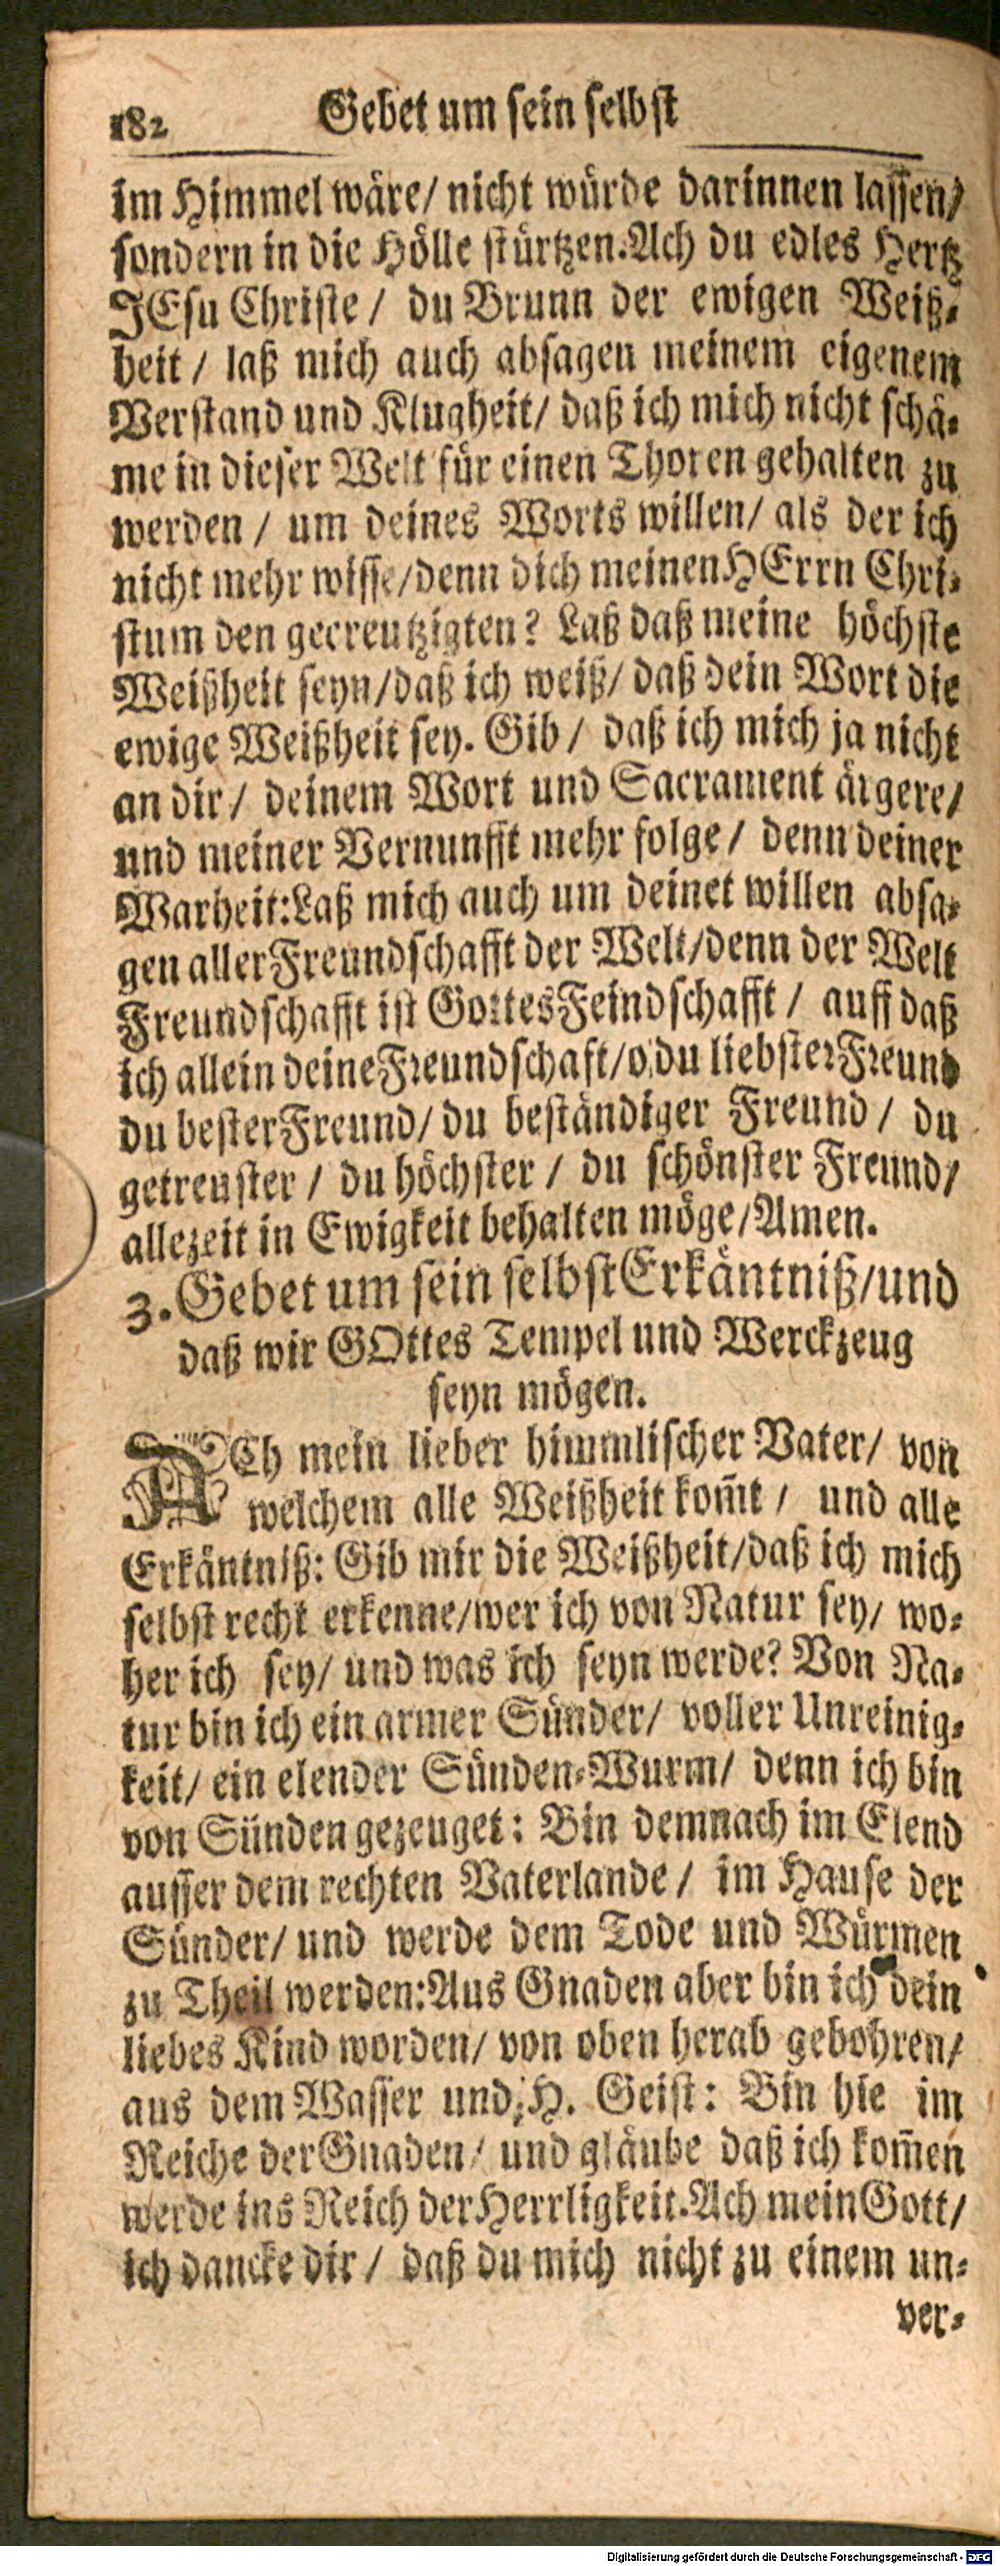 182 Gebet um sein selbst
im Himmel wäre/ nicht würde darinnen lassen/
sondern in die Hölle stürtzen. Ach du edles Hertz
JEsu Christe / du Brunn der ewigen Weiß-
heit / laß mich auch absagen meinem eigenem
Verstand und Klugheit/ daß ich mich nicht schä-
me in dieser Welt für einen Thoren gehalten zu
werden / um deines Worts willen/ als der ich
nicht mehr wisse/denn dich meinen HErrn Chri-
stum den gecreutzigten? Laß daß meine höchste
Weißheit seyn/daß ich weiß/ daß dein Wort die
ewige Weißheit sey. Gib / daß ich mich ja nicht
an dir / deinem Wort und Sacrament ärgere/
und meiner Vernunfft mehr folge / denn deiner
Warheit: Laß mich auch um deinet willen absa-
gen aller Freundschafft der Welt/denn der Welt
Freundschafft ist Gottes Feindschafft / auff daß
ich allein deine Freundschaft/o du liebster Freund
du bester Freund/ du beständiger Freund / du
getreuster / du höchster / du schönster Freund/
allezeit in Ewigkeit behalten möge/Amen.
3. Gebet um sein selbst Erkäntniß/und
daß wir GOttes Tempel und Werckzeug
seyn mögen.
ACh mein lieber himmlischer Vater/ von
welchem alle Weißheit kom̃t / und alle
Erkäntniß: Gib mir die Weißheit/daß ich mich
selbst recht erkenne/wer ich von Natur sey/ wo-
her ich sey/ und was ich seyn werde? Von Na-
tur bin ich ein armer Sünder/ voller Unreinig-
keit/ ein elender Sünden-Wurm/ denn ich bin
von Sünden gezeuget: Bin demnach im Elend
ausser dem rechten Vaterlande / im Hause der
Sünder/ und werde dem Tode und Würmen
zu Theil werden: Aus Gnaden aber bin ich dein
liebes Kind worden/ von oben herab gebohren/
aus dem Wasser und H. Geist: Bin hie im
Reiche der Gnaden/ und gläube daß ich kom̃en
werde ins Reich der Herrligkeit. Ach mein Gott/
ich dancke dir / daß du mich nicht zu einem un-
ver-
Digitalisierung gefördert durch die Deutsche Forschungsgemeinschaft - DFG